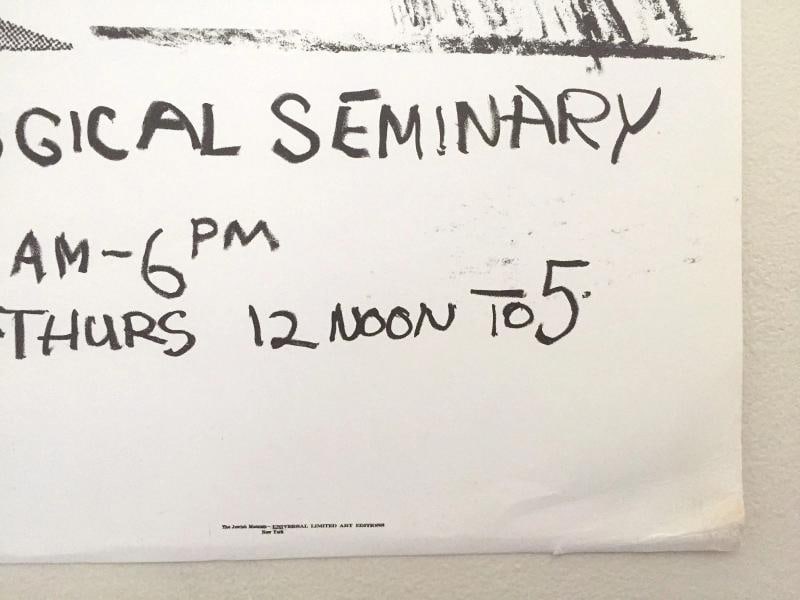 GICAL SEMINARY
AM-6PM
THURS 12 NOON TO 5
The Jewish Museum—UNIVERSAL LIMITED ART EDITIONS
New York